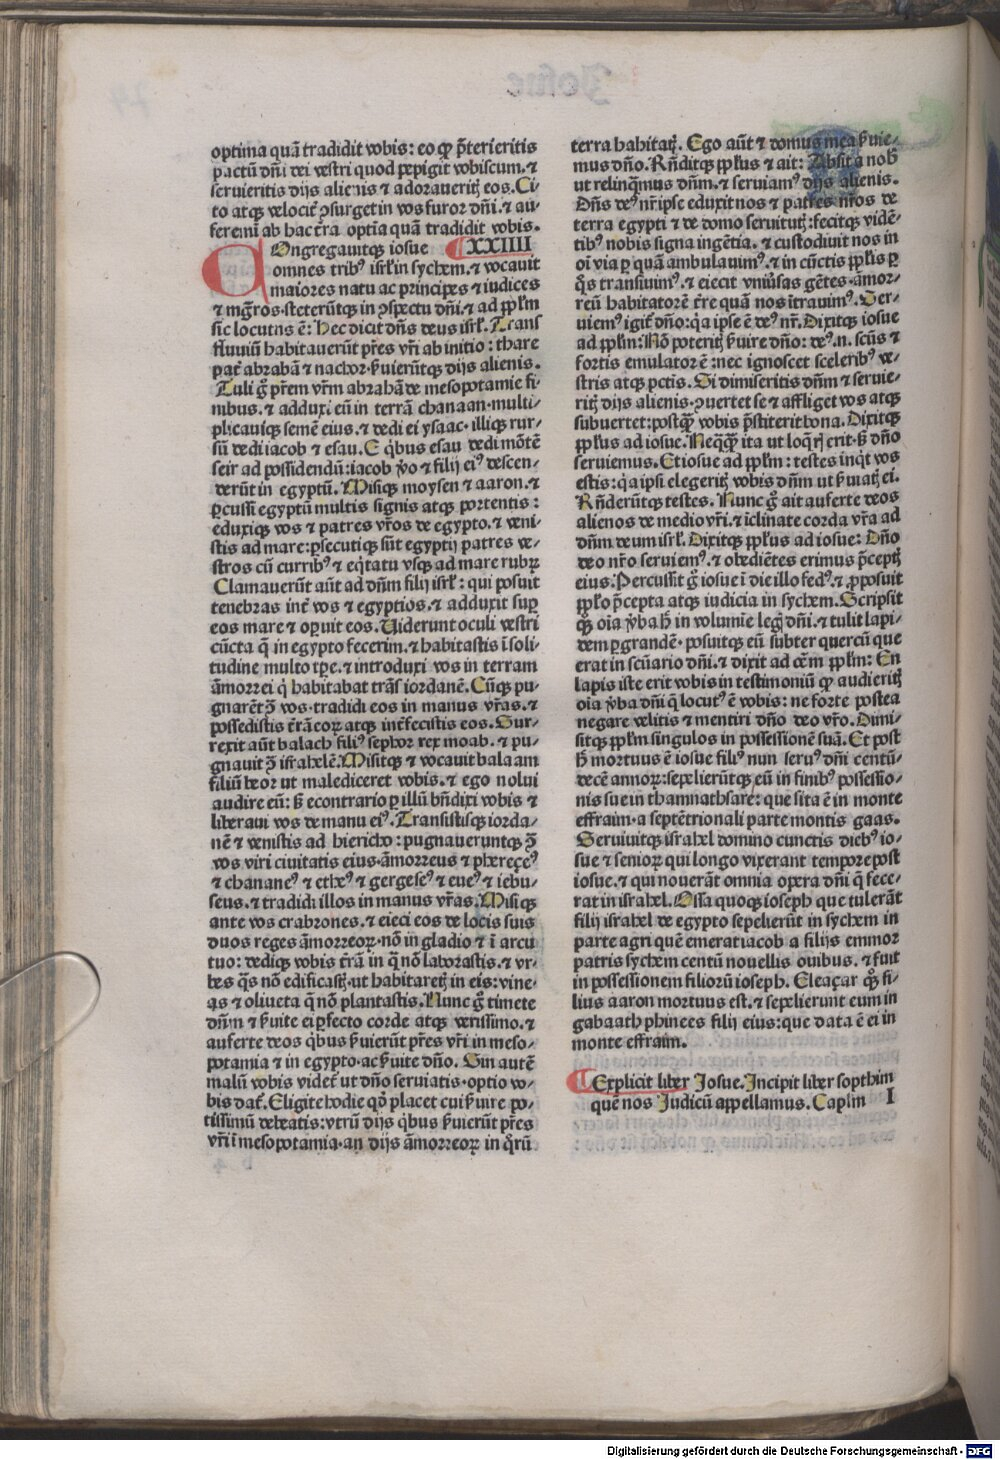 optima quā tradidit vobis: eo ꝙ p̄terieritis
pactū dñi dei vestri quod pepigit vobiscum.⁊
seruieritis dijs alienis ⁊ adoraueritꝭ eos. Ci-
to atqꝫ velocit̄ ꝯsurget in vos furor dñi.⁊ au-
feremī ab hac t̄ra optīa quā tradidit vobis.
COngregauitqꝫ iosue XXIIII
omnes tribꝰ isrl̄ in sychem.⁊ vocauit
maiores natu ac principes ⁊ iudices
⁊ mgr̄os. steterūtqꝫ in ꝯspectu dñi.⁊ ad ppl̄m
sic locutus ē: Hec dicit dñs deus isrl̄. Trans
fluuiū habitauerūt pr̄es vr̄i ab initio: thare
pat̄ abrahā ⁊ nachor. ẜuierūtqꝫ dijs alienis.
Tuli g̊ pr̄em vr̄m abrahā de mesopotamie fi-
nibus.⁊ adduxi eū in terrā chanaan. multi-
plicauiqꝫ semē eius.⁊ dedi ei ysaac. illiqꝫ rur-
sū dedi iacob ⁊ esau. E qͥbus esau dedi mōtē
seir ad possidendū: iacob ꝟo ⁊ filij eiꝰ descen-
derūt in egyptū. Misiqꝫ moysen ⁊ aaron.⁊
ꝑcussi egyptū multis signis atqꝫ portentis:
eduxiqꝫ vos ⁊ patres vr̄os de egypto.⁊ veni-
stis ad mare: ꝑsecutiqꝫ sūt egyptij patres ve-
stros cū curribꝰ ⁊ eqͥtatu vsqꝫ ad mare rubꝝ
Clamauerūt aūt ad dñm filij isrl̄: qui posuit
tenebras int̄ vos ⁊ egyptios.⁊ adduxit suꝑ
eos mare ⁊ oꝑuit eos. Uiderunt oculi vestri
cūcta q̄ in egypto fecerim.⁊ habitastis ī soli-
tudine multo tꝑe.⁊ introduxi vos in terram
āmorrei qͥ habitabat trās iordanē. Cūqꝫ pu-
gnarēt ꝯ̄ vos. tradidi eos in manus vr̄as.⁊
possedistis t̄rā eoꝝ atqꝫ int̄fecistis eos. Sur-
rexit aūt balach filiꝰ sephor rex moab.⁊ pu-
gnauit ꝯ̄ israhelē. Misitqꝫ ⁊ vocauit balaam
filiū beor ut malediceret vobis.⁊ ego nolui
audire eū: ẜ econtrario ꝑ illū bn̄dixi vobis ⁊
liberaui vos de manu eiꝰ. Transistisqꝫ iorda-
nē ⁊ venistis ad hiericho: pugnaueruntqꝫ ꝯ̄
vos viri ciuitatis eius. āmorreus ⁊ phereçeꝰ
⁊ chananeꝰ ⁊ etheꝰ ⁊ gergeseꝰ ⁊ eueꝰ ⁊ iebu-
seus.⁊ tradidi illos in manus vr̄as. Misiqꝫ
ante vos crabrones.⁊ eieci eos de locis suis
duos reges āmorreoꝝ. nō in gladio ⁊ ī arcu
tuo: dediqꝫ vobis t̄rā in q̄ nō laborastis.⁊ vr-
bes q̄s nō edificastꝭ. ut habitaretꝭ in eis: vine-
as ⁊ oliueta q̄ nō plantastis. Nunc g̊ timete
dñm ⁊ ẜuite ei ꝑfecto corde atqꝫ verissimo.⁊
auferte deos qͥbus ẜuierūt pr̄es vr̄i in meso-
potamia ⁊ in egypto. ac ẜuite dño. Sin autē
malū vobis videt̄ ut dño seruiatis. optio vo-
bis dat̄. Eligite hodie qd̄ placet cui ẜuire po-
tissimū debeatis: vtrū dijs qͥbus ẜuierūt pr̄es
vr̄i ī mesopotamia. an dijs āmorreoꝝ in qͦrū
terra habitatꝭ. Ego aūt ⁊ domus mea ẜuie-
mus dño. Rn̄ditqꝫ ppl̄us ⁊ ait: Absit a nob̄
ut relinqͣmus dñm.⁊ seruiamꝰ dijs alienis.
Dñs deꝰ nr̄ ipse eduxit nos ⁊ patres nr̄os de
terra egypti ⁊ de domo seruitutꝭ: fecitqꝫ vidē-
tibꝰ nobis signa ingētia.⁊ custodiuit nos in
oī via ꝑ quā ambulauimꝰ.⁊ in cūctis ppl̄is ꝑ
q̄s transiuimꝰ.⁊ eiecit vniūsas gētes. amor-
reū habitatorē t̄re quā nos ītrauimꝰ. Ser-
uiemꝰ igit̄ dño: qͥa ipse ē deꝰ nr̄. Dixitqꝫ iosue
ad ppl̄m: Nō poteritꝭ ẜuire dño: deꝰ.n. scūs ⁊
fortis emulator ē: nec ignoscet sceleribꝰ ve-
stris atqꝫ pctīs. Si dimiseritis dñm ⁊ seruie-
ritꝭ dijs alienis. ꝯuertet se ⁊ affliget vos atqꝫ
subuertet: postqͣꝫ vobis p̄stiterit bona. Dixitqꝫ
ppl̄us ad iosue. Neqͣqͣꝫ ita ut loqͥrꝭ erit. ẜ dño
seruiemus. Et iosue ad ppl̄m: testes inqͥt vos
estis: qͥa ipsi elegeritꝭ vobis dñm ut ẜuiatꝭ ei.
Rn̄derūtqꝫ testes. Nunc g̊ ait auferte deos
alienos de medio vr̄i.⁊ īclinate corda vr̄a ad
dñm deum isrl̄. Dixitqꝫ ppl̄us ad iosue: Dño
deo nr̄o seruiemꝰ.⁊ obediētes erimus p̄ceptꝭ
eius. Percussit g̊ iosue ī die illo fedꝰ.⁊ ꝓposuit
ppl̄o p̄cepta atqꝫ iudicia in sychem. Scripsit
qꝫ oīa ꝟba h̄ in volumīe legꝭ dñi.⁊ tulit lapi-
dem ꝑgrandē. posuitqꝫ eū subter quercū que
erat in scūario dñi.⁊ dixit ad oēm ppl̄m: En
lapis iste erit vobis in testimoniū ꝙ audieritꝭ
oīa ꝟba dñi q̄ locutꝰ ē vobis: ne forte postea
negare velitis ⁊ mentiri dño deo vr̄o. Dimi-
sitqꝫ ppl̄m singulos in possessionē suā. Et post
h̄ mortuus ē iosue filiꝰ nun seruꝰ dñi centū-
decē annoꝝ: sepelierūtqꝫ eū in finibꝰ possessio-
nis sue in thamnathsare: que sita ē in monte
effraim. a septētrionali parte montis gaas.
Seruiuitqꝫ israhel domino cunctis diebꝰ io-
sue ⁊ senioꝝ qui longo vixerant tempore post
iosue.⁊ qui nouerāt omnia opera dñi q̄ fece-
rat in israhel. Ossa quoqꝫ ioseph que tulerāt
filij israhel de egypto sepelierūt in sychem in
parte agri quē emerat iacob a filijs emmor
patris sychem centū nouellis ouibus.⁊ fuit
in possessionem filiorū ioseph. Eleaçar qꝫ fi-
lius aaron mortuus est.⁊ sepelierunt eum in
gabaath phinees filij eius: que data ē ei in
monte effraim.
Explicit liber Josue. Incipit liber sopthim
quē nos Judicū appellamus. Caplm I
Digitalisierung gefördert durch die Deutsche Forschungsgemeinschaft - DFG